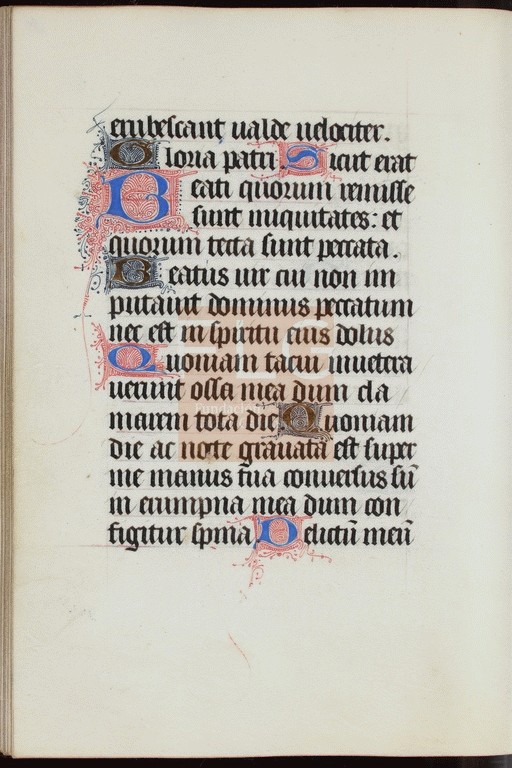 erubescant ualde uelociter.
Gloria patri. Sicut erat
Beati quorum remisse
sunt iniquitates: et
quorum tecta sunt peccata.
Beatus uir cui non im
putauit dominus peccatum
nec est in spiritu eius dolus
Quoniam tacui inuetera
uerunt ossa mea dum cla
marem tota die Quoniam
die ac nocte grauata est super
me manus tua conuersus sū
in erumpna mea dum con
figitur spina Delictū meū